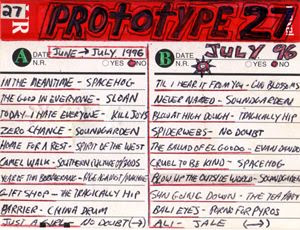 27
PROTOTYPE 27
A DATE JUNE → JULY 1996
N.R. YES NO
B DATE JULY 96
N.R. YES NO
IN THE MEANTIME - SPACEHOG
THE GOOD IN EVERYONE - SLOAN
TODAY I HATE EVERYONE - KILLJOYS
ZERO CHANCE - SOUNDGARDEN
HOME FOR A REST - SPIRIT OF THE WEST
CAMEL WALK - SOUTHERN CULTURE
YEAR OF THA BOOMERANG - RAGE AGAINST MACHINE
GIFT SHOP - THE TRAGICALLY HIP
BARRIER - CHINA DRUM
JUST A GIRL - NO DOUBT (→)
TIL I HEAR IT FROM YOU - GIN BLOSSOMS
NEVER NAMED - SOUNDGARDEN
BUTTS HIGH DOUGH - TRAGICALLY HIP
SPIDERWEBS - NO DOUBT
THE BALLAD OF EL GOODO - EVAN DANDO
CRUEL TO BE KIND - SPACEHOG
BLOW UP THE OUTSIDE WORLD - SOUNDGARDEN
SUN GOING DOWN - THE TEA PARTY
BALI EYES - PORNO FOR PYROS
ALI - JALE (→)